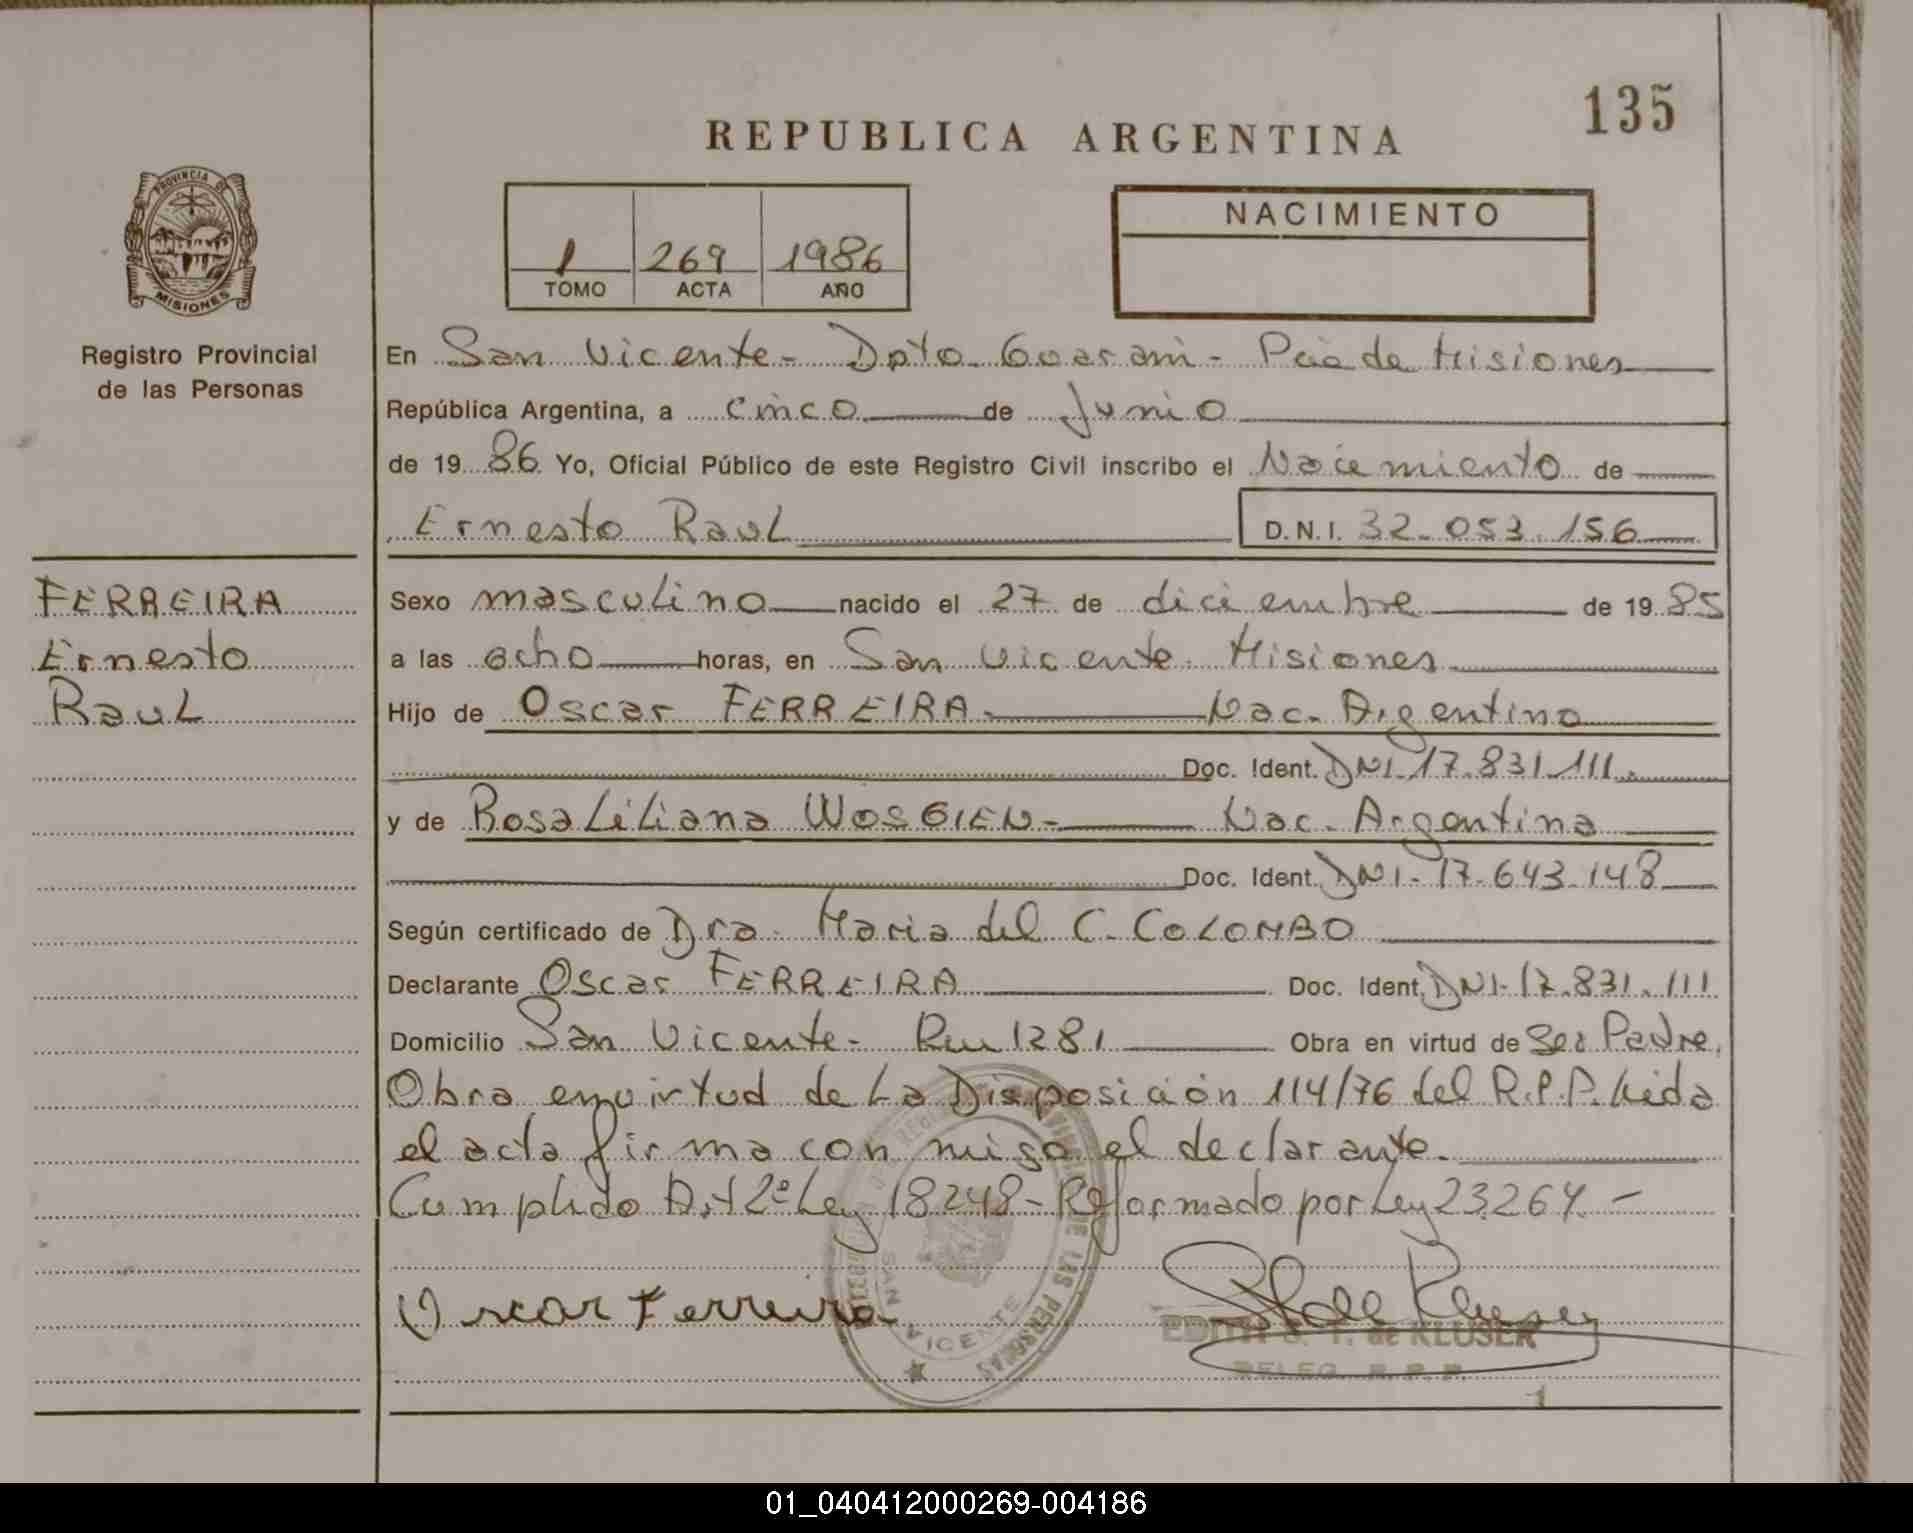 135
REPUBLICA ARGENTINA
PROVINCIA DE
MISIONES
Registro Provincial
de las Personas
1 269 1986
TOMO ACTA AÑO
NACIMIENTO
En San Vicente - Dpto Guarani - Pcia de Misiones
República Argentina, a cinco de Junio
de 19 86 Yo, Oficial Público de este Registro Civil inscribo el Nacimiento de
Ernesto Raul D.N.I. 32.053.156
FERREIRA
Ernesto
Raul
Sexo masculino nacido el 27 de diciembre de 19 85
a las ocho horas, en San Vicente Misiones
Hijo de Oscar FERREIRA Nac. Argentino
Doc. Ident. DNI 17.831.111.
y de Rosa Liliana WOSGIEN - Nac. Argentina
Doc. Ident. DNI - 17.643.148
Según certificado de Dra. Maria del C. COLOMBO
Declarante Oscar FERREIRA Doc. Ident. DNI - 17.831.111
Domicilio San Vicente - Km 1281 Obra en virtud de Ser Padre.
Obra en virtud de La Disposición 114/76 del R.P.P. Leida
el acta firma con migo el declarante.
Cumplido Art 2º Ley 18248 - Reformado por Ley 23.264. -
Oscar Ferreira
SAN VICENTE
DE LAS PERSONAS
EDITH S. T. de KLUSER
DELEG. R. P. P.
1
01_040412000269-004186